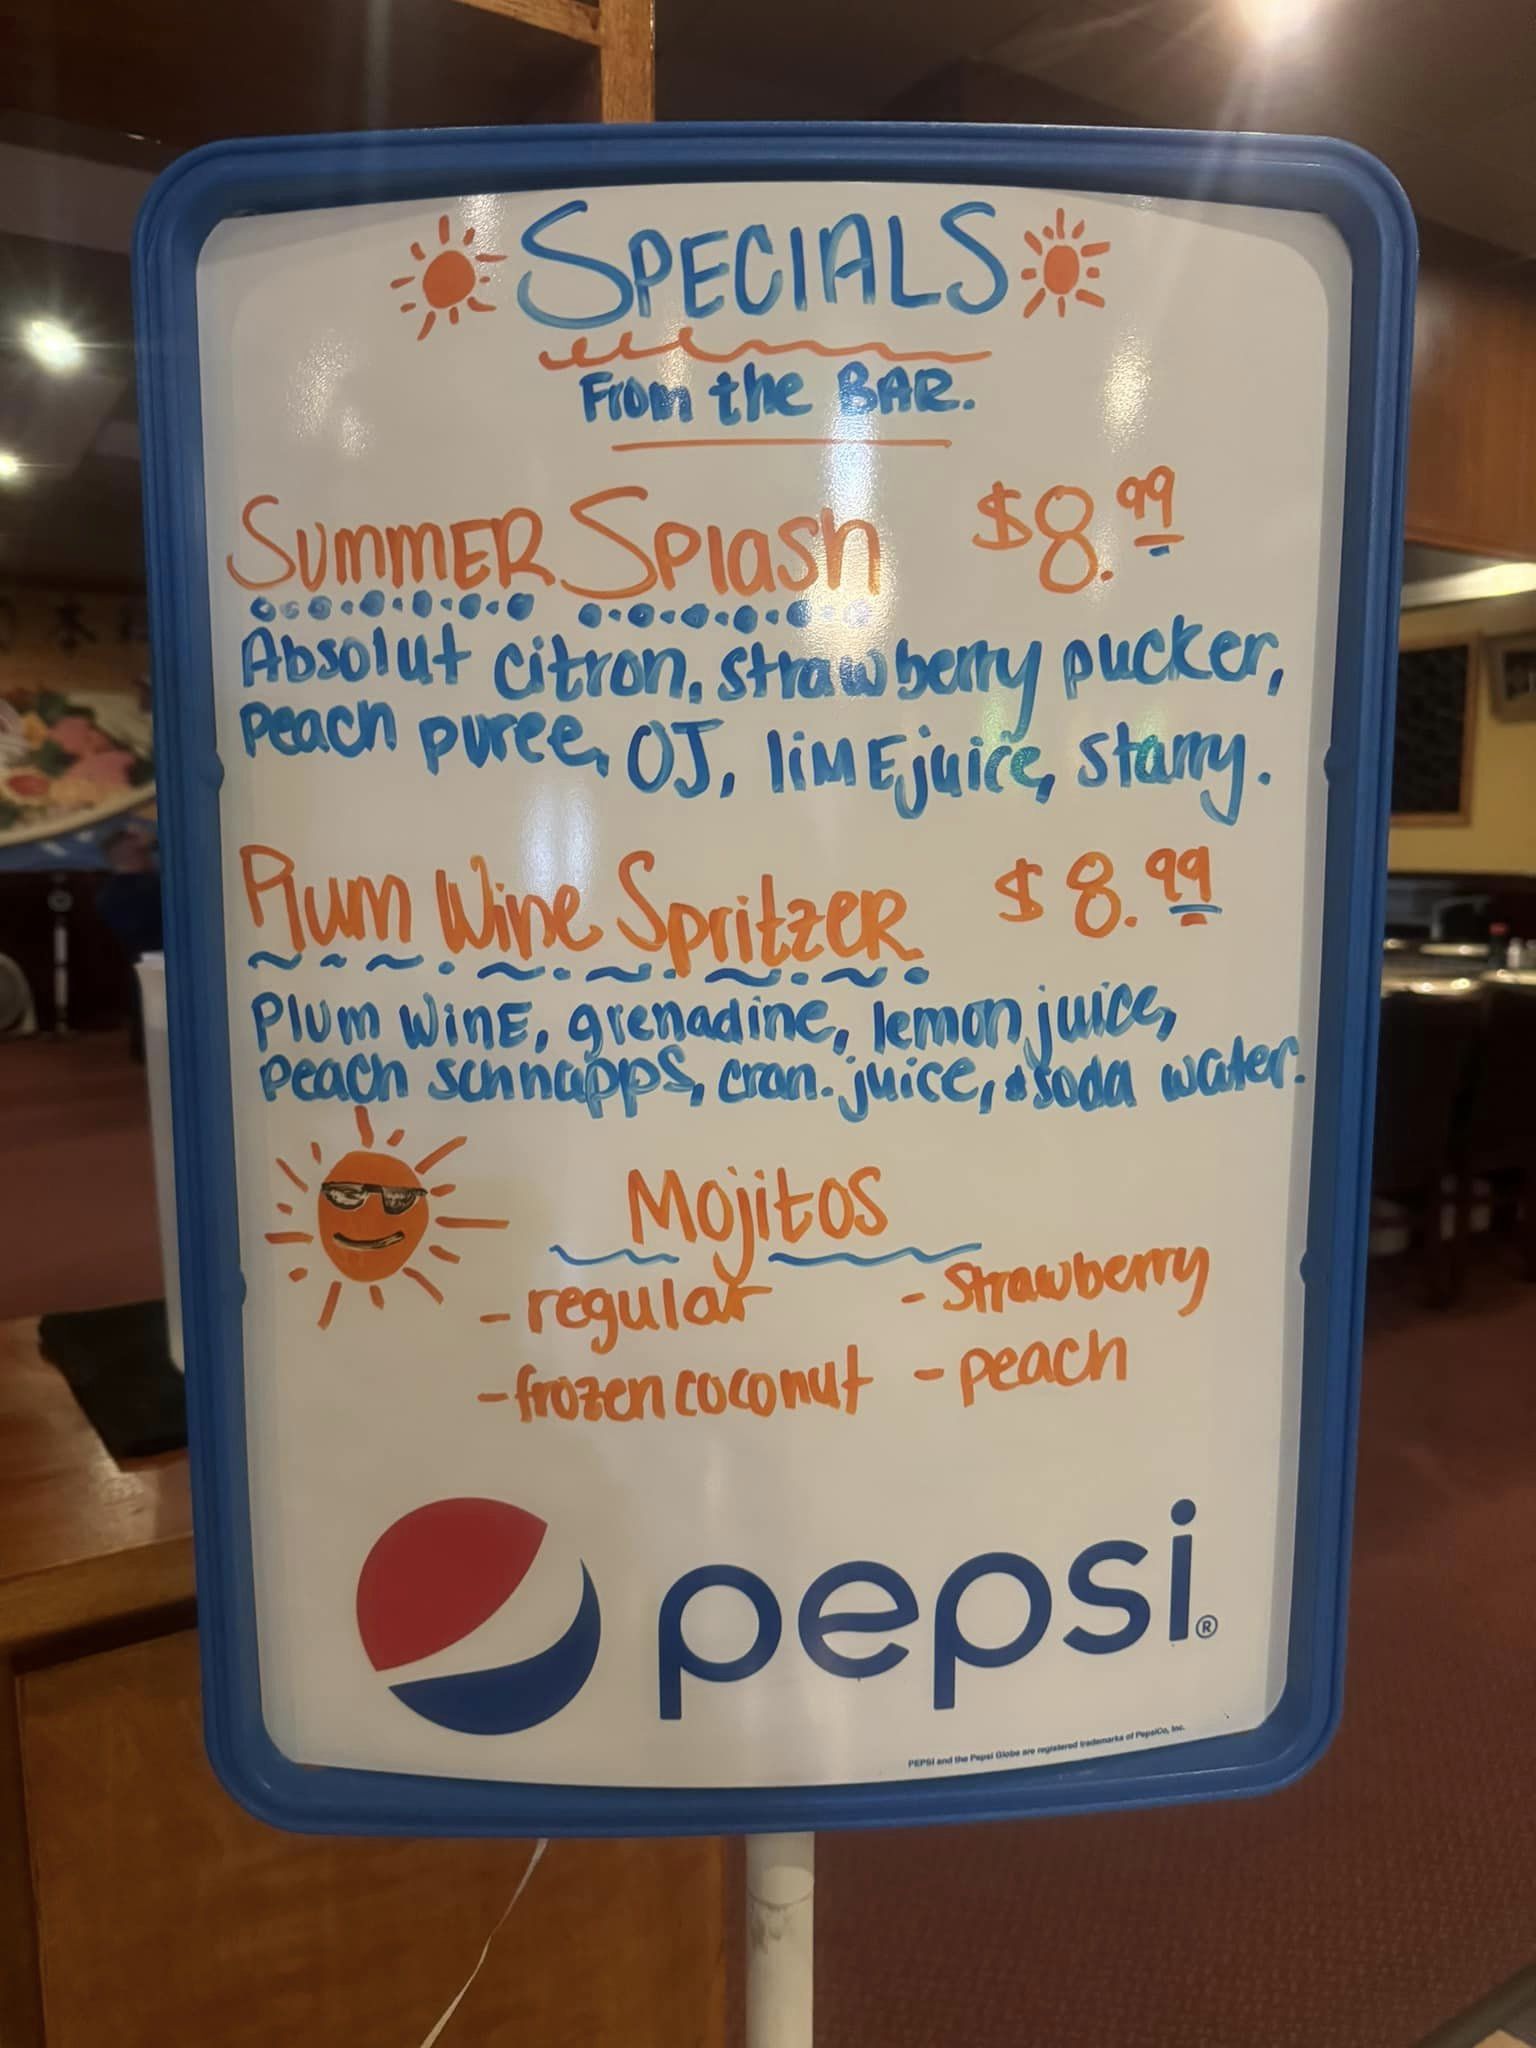 SPECIALS
From the BAR.
SUMMER Splash $8.99
Absolut citron, strawberry pucker,
peach puree, OJ, limE juice, starry.
Plum Wine SpritzeR $8.99
Plum winE, grenadine, lemon juice,
peach schnapps, cran. juice, & soda water.
Mojitos
- regular - strawberry
- frozen coconut - peach
pepsi®
PEPSI and the Pepsi Globe are registered trademarks of PepsiCo, Inc.